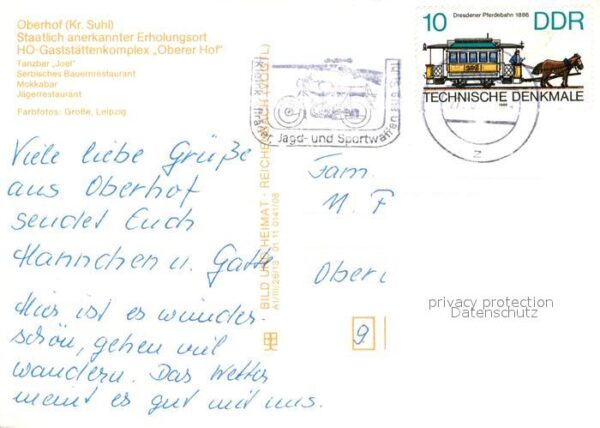 Oberhof (Kr. Suhl)
Staatlich anerkannter Erholungsort
HO-Gaststättenkomplex „Oberer Hof"
Tanzbar „Joel"
Serbisches Bauernrestaurant
Mokkabar
Jägerrestaurant
Farbfotos: Große, Leipzig
Viele liebe Grüße
aus Oberhof
sendet Euch
Hannchen u. Gatte
Hier ist es wunder-
schön, gehen viel
wandern. Das Wetter
meint es gut mit uns.
BILD UND HEIMAT · REICHENBACH (VOGTL)
A1/III/26/13 01 11 0141/08
Jagd- und Sportwaffen aus Suhl
Dresdener Pferdebahn 1886
10 DDR
TECHNISCHE DENKMALE
1986
z
Fam.
M. F
Ober
9
privacy protection
Datenschutz